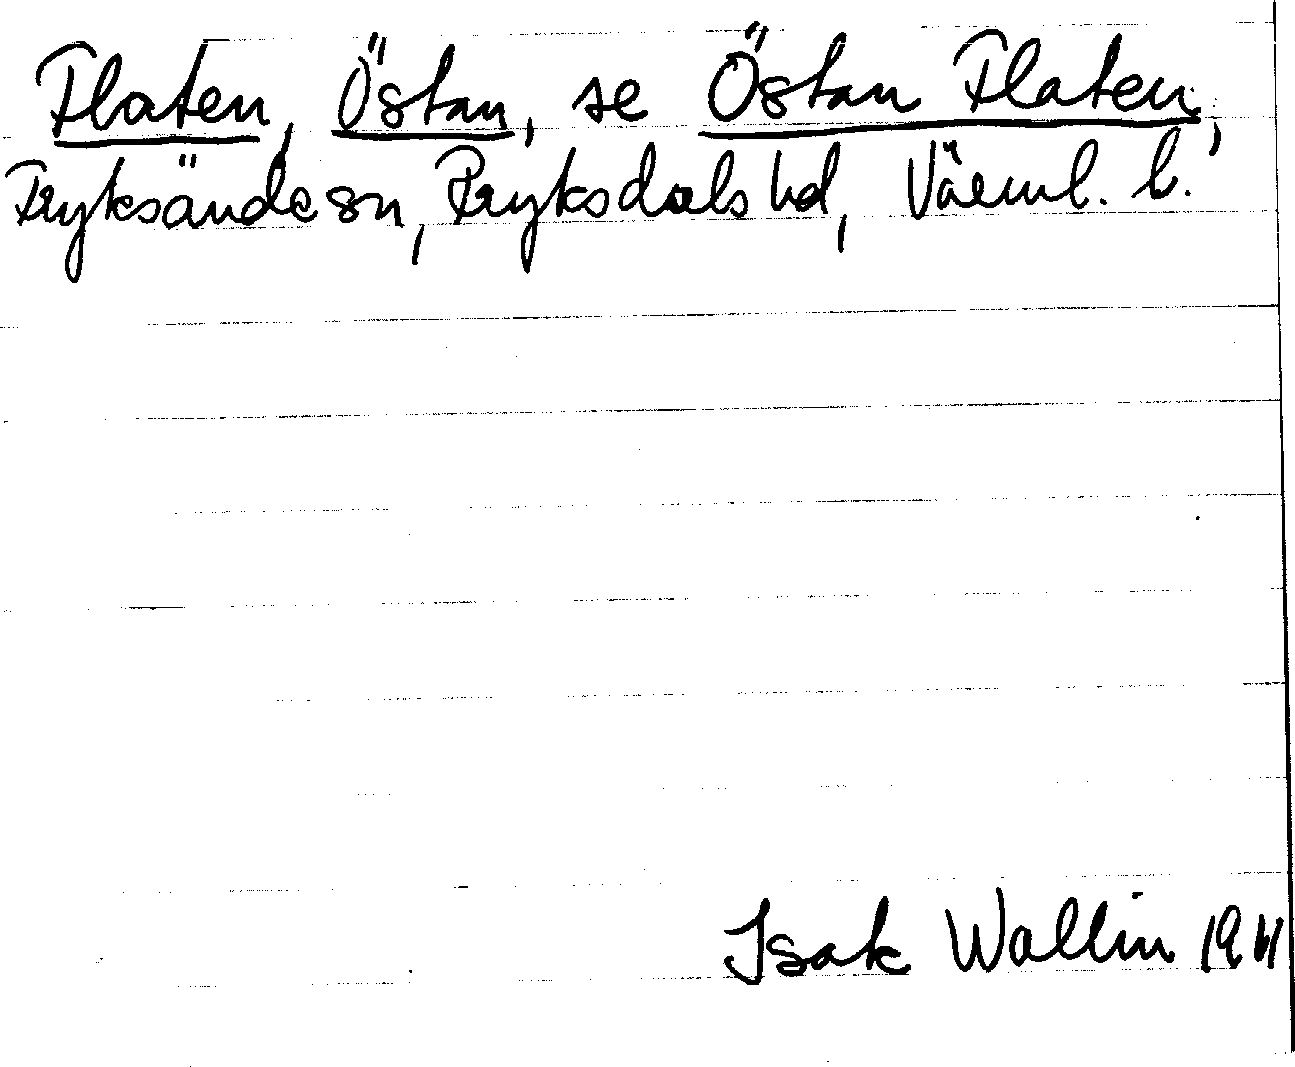 Flaten, Östan, se Östan Flaten,
Fryksände sn, Fryksdals hd, Värml. l.
Isak Wallin 1911